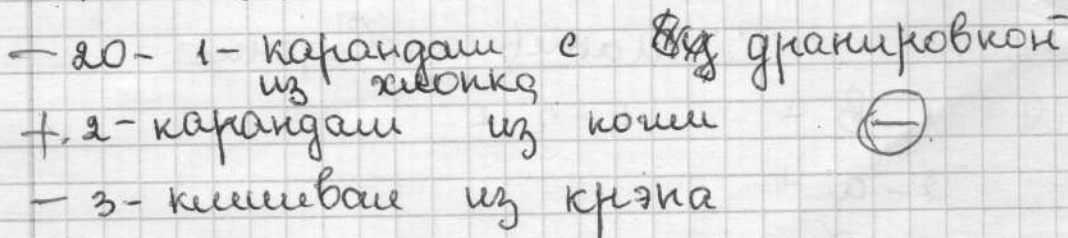 — 20 - 1 - карандаш с драпировкой
из хлопка
+. 2 - карандаш из кожи ⊖
— 3 - клишевая из крэпа